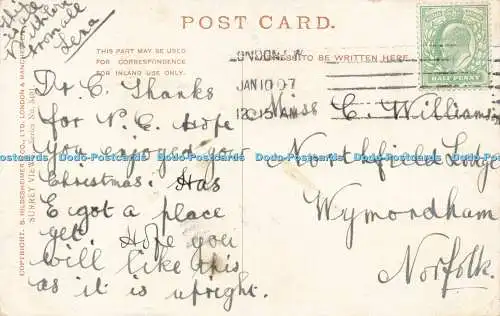 POST CARD.
THIS PART MAY BE USED
FOR CORRESPONDENCE
FOR INLAND USE ONLY.
TO BE WRITTEN HERE.
HALF PENNY
LONDON. W
JAN 10 07
12.15 AM
love from all
Lena
Dr C. Thanks
for P.C. Hope
you enjoyed your
Christmas. Has
E got a place
yet. Hope you
will like this
as it is upright.
Miss C. Williamson
Northfield Lodge
Wymondham
Norfolk.
COPYRIGHT. S. HILDESHEIMER & CO., LTD. LONDON & MANCHESTER
SURREY VIEWS Series No.
Dodo-Postcards Dodo-Postcards Dodo-Postcards Dodo-Postcards Dodo-Postcards